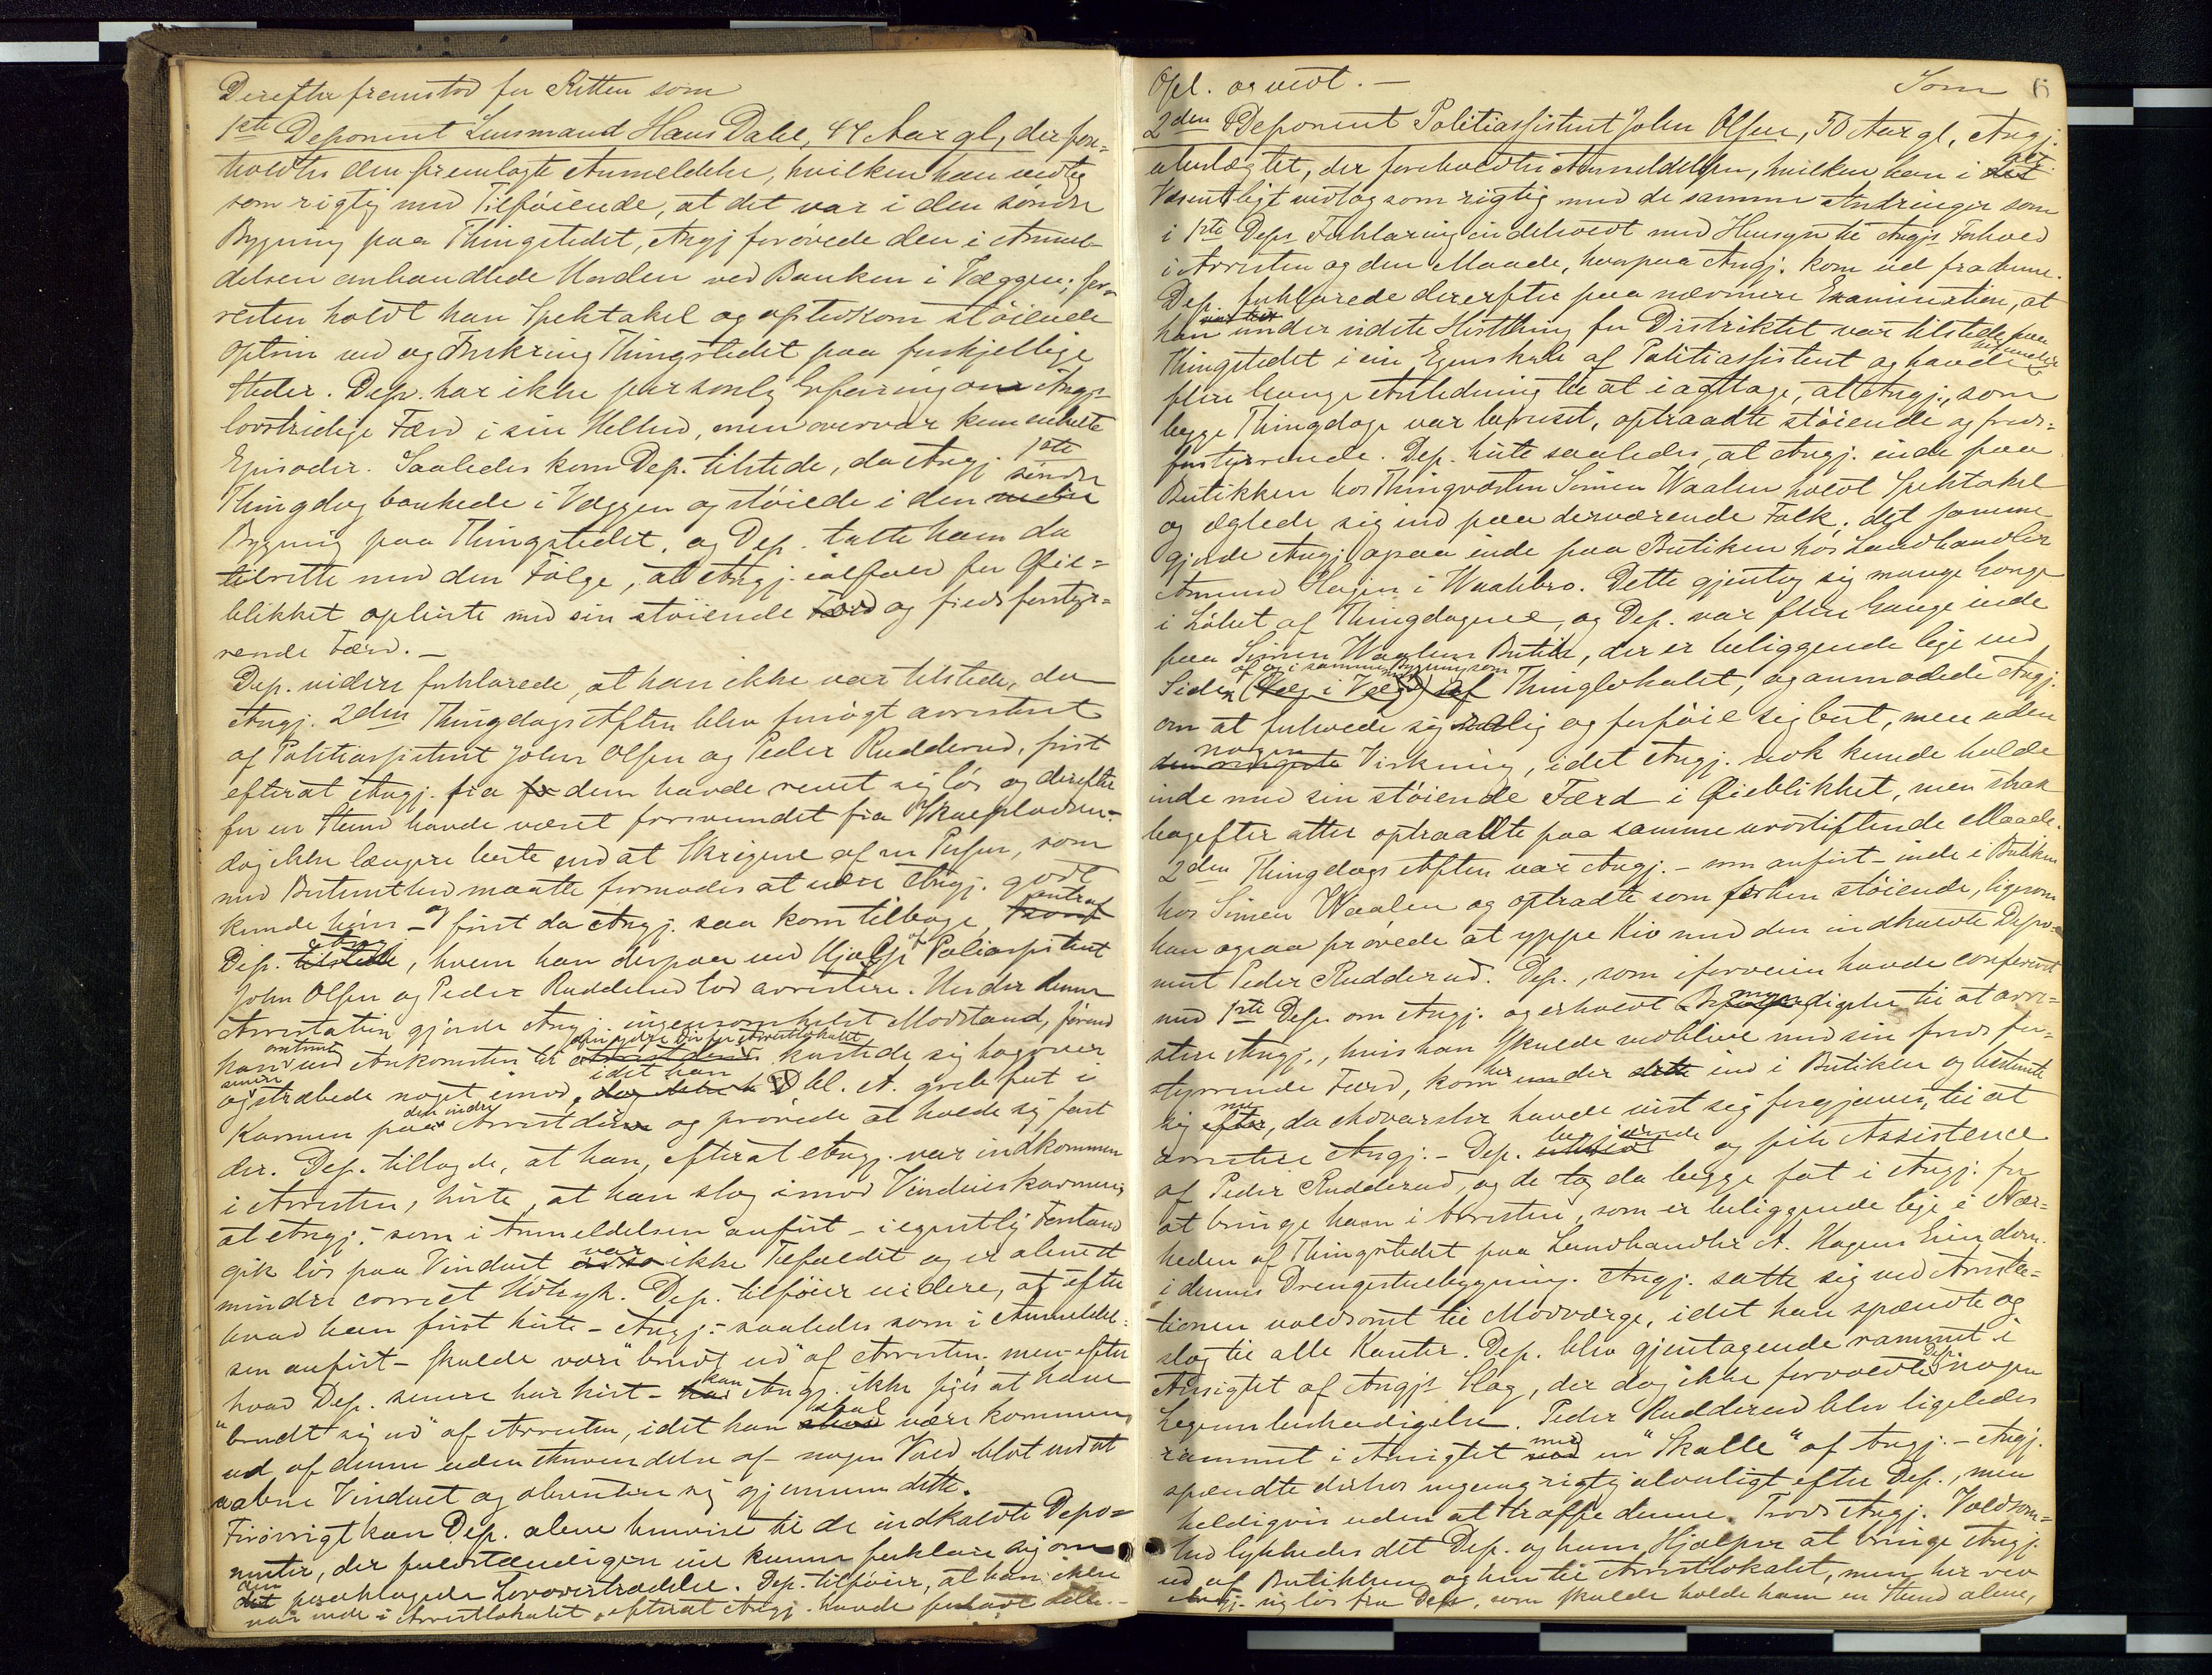 Derefter fremstod for Retten som
1ste Deponent Lensmand Hans Dahl, 44 Aar gl., der fore=
holdtes den fremlagte Anmeldelse, hvilken han vedtog
som rigtig med Tilføiende, at det var i den søndre
Bygning paa Thingstedet, Angj. forøvede den i Anmel-
delsen omhandlede Uorden ved Banken i Væggen; for-
resten holdt han Spektakel og afstedkom støiende
Optrin ved og omkring Thingstedet paa forskjellige
Steder. Dep. har ikke personlig Erfaring om Angjs
lovstridige Færd i sin Helhed, men overvar kun enkelte
Episoder. Saaledes kom Dep. tilstede, da Angj. 1ste
Thingdag bankede i Væggen og støiede i den søndre
Bygning paa Thingstedet, og Dep. talte ham da
tilrette med den Følge, at Angj. ialfald for Øie=
blikket ophørte med sin støiende og fredsforstyr=
rende Færd. —
Dep. videre forklarede, at han ikke var tilstede, da
Angj. 2den Thingdags Aften blev forsøgt arresteret
af Politiassistent John Olsen og Peder Rudderud, først
efterat Angj. fra dem havde revet sig løs og derefter
for en Stund havde været forsvundet fra Skuepladsen-
dog ikke længere borte end at Skrigene af en Person, som
med Bestemthed maatte formodes at være Angj. godt
kunde høres - og først da Angj. saa kom tilbage, antraf
Dep. ham, hvem han derpaa ved Hjælp af Politiassistent
John Olsen og Peder Rudderud lod arrestere. Under denne
Arrestation gjorde Angj. ingensomhelst Modstand, førend
han omtrent ved Ankomsten til den ydre Dør for Arrestlokalet kastede sig bagover
og senere stræbede noget imod, idet han bl. A. greb fat i
Karmen paa den indre Arrestdør og prøvede at holde sig fast
der. Dep. tillagde, at han, efterat Angj. var indkommen
i Arresten, hørte, at han slog imod Vindueskarmen;
at Angj. - som i Anmeldelsen anført - i egentlig Forstand
gik løs paa Vinduet var ikke Tilfældet og er alene et
mindre correct Udtryk. Dep. tilføier videre, at efter
hvad han først hørte - Angj. - saaledes som i Anmeldel=
sen anført - skulde være "brudt ud" af Arresten; men efter
hvad Dep. senere har hørt - kan Angj. ikke siges at have
"brudt sig ud" af Arresten, idet han skal være kommen
ud af denne uden Anvendelse af nogen Vold blot ved at
aabne Vinduet og absentere sig gjennem dette.
Forøvrigt kan Dep. alene henvise til de indkaldte Depo=
nenter, der fuldstændigen vil kunne forklare sig om
den paaklagede Lovovertrædelse. Dep. tilføier, at han ikke
var inde i Arrestlokalet, efterat Angj. havde forladt dette. -
Opl. og vedt. — Som 6
2den Deponent Politiassistent John Olsen, 50 Aar gl., Angj.
ubeslægtet, der foreholdtes Anmeldelsen, hvilken han i alt
Væsentligt vedtog som rigtig med de samme Ændringer som
i 1ste Deps Forklaring indeholdt med Hensyn til Angjs Forhold
i Arresten og den Maade, hvorpaa Angj. kom ud fra denne.
Dep. forklarede derefter paa nærmere Examination, at
han under sidste Høstthing for Distriktet var tilstede paa
Thingstedet i sin Egenskab af Politiassistent og havde herunder
flere Gange Anledning til at iagttage, at Angj., som
begge Thingdage var beruset, optraadte støiende og freds=
forstyrrende. Dep. hørte saaledes, at Angj. inde paa
Butikken hos Thingverten Simen Waalen holdt Spektakel
og æglede sig ind paa derværende Folk; det samme
gjorde Angj. ogsaa inde paa Butiken hos Landhandler
Amund Hagen i Waalebro. Dette gjentog sig mange Gange
i Løbet af Thingdagene, og Dep. var flere Gange inde
paa Simen Waalens Butik, der er beliggende lige ved
Siden af og i samme Bygning som Thinglokalet, og anmodede Angj.
om at forholde sig rolig og forføie sig bort, men uden
nogen Virkning, idet Angj. nok kunde holde
inde med sin støiende Færd i Øieblikket, men strax
bagefter atter optraadte paa samme urostiftende Maade.
2den Thingdags Aften var Angj. - som anført - inde i Butikken
hos Simen Waalen og optraadte som forhen støiende, ligesom
han ogsaa prøvede at yppe Kiv med den indkaldte Depo=
nent Peder Rudderud. Dep., som iforveien havde confereret
med 1ste Dep. om Angj. og erholdt Bemyndigelse til at arre=
stere Angj., hvis han skulde vedblive med sin fredsfor=
styrrende Færd, kom herunder ind i Butiken og bestemte
sig nu, da Advarsler havde vist sig forgjæves, til at
arrestere Angj. - Dep. begjærede og fik Assistence
af Peder Rudderud, og de tog da begge fat i Angj. for
at bringe ham i Arresten, som er beliggende lige i Nær=
heden af Thingstedet paa Landhandler A. Hagens Eiendom
i dennes Drengestuebygning. Angj. satte sig ved Arresta=
tionen voldsomt til Modværge, idet han spændte og
slog til alle Kanter. Dep. blev gjentagende rammet i
Ansigtet af Angjs Slag, der dog ikke forvoldte Dep. nogen
Legemsbeskadigelse. Peder Rudderud blev ligeledes
rammet i Ansigtet med en "Skalle" af Angj. - Angj.
spændte derhos engang rigtig alvorligt efter Dep., men
heldigvis uden at træffe denne. Trods Angj. Voldsom=
hed lykkedes det Dep. og hans Hjælper at bringe Angj.
ud af Butikken og hen til Arrestlokalet, men her rev
Angj. sig løs fra Dep., som skulde holde ham en Stund alene,